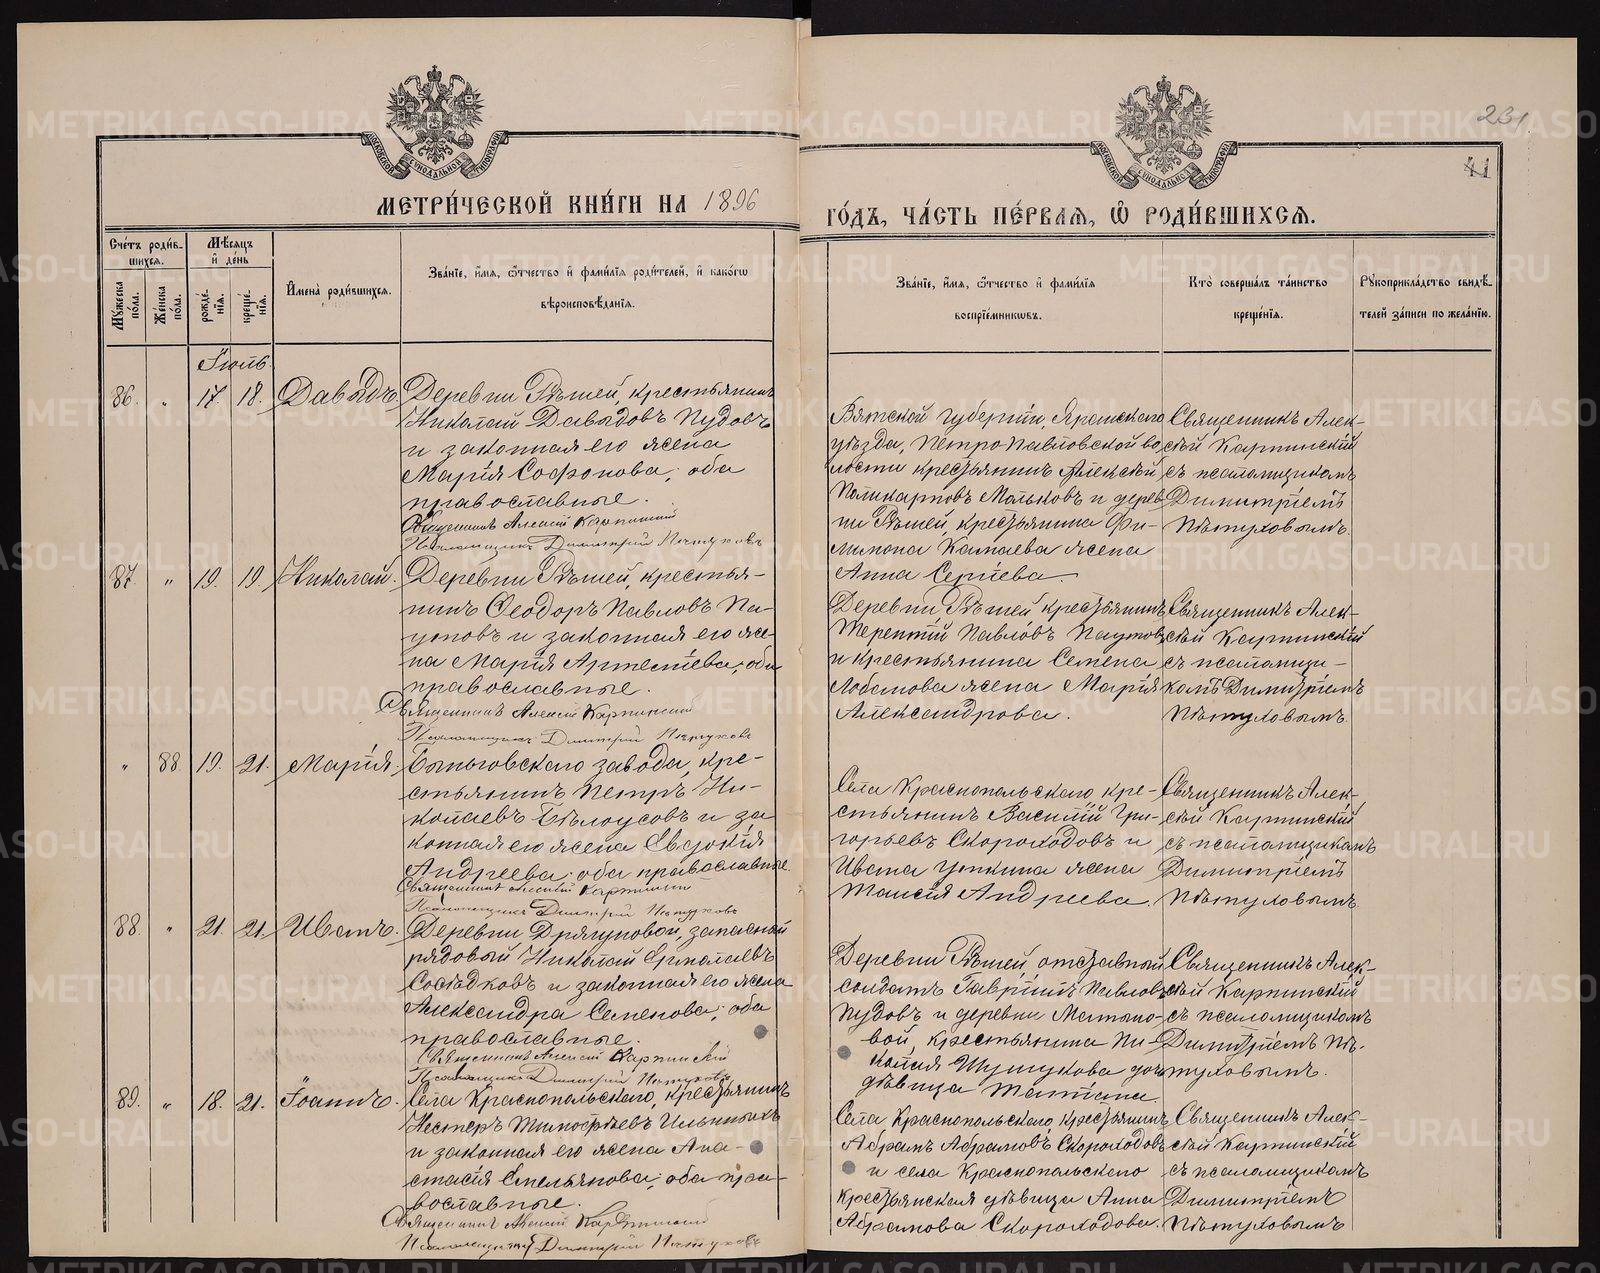 231
41
МОСКОВСКОЙ СѴНОДАЛЬНОЙ ТИПОГРАФІИ
МОСКОВСКОЙ СѴНОДАЛЬНОЙ ТИПОГРАФІИ
МЕТРИ́ЧЕСКОЙ КНИ́ГИ НА 1896
ГО́ДЪ, ЧА́СТЬ ПЕ́РВАЯ, Ѽ РОДИ́ВШИХСЯ.
Сче́тъ роди́в-
шихся.
Мꙋ́жеска по́ла.
Же́нска по́ла.
Мѣ́сяцъ и҆ де́нь
рожде́нїя.
креще́нїя.
И҆мена̀ роди́вшихся.
Зва́нїе, и҆́мя, ѻ҆́тчество и҆ фами́лїя роди́телей, и҆ како́гѡ
вѣроисповѣ́данїя.
Зва́нїе, и҆́мя, ѻ҆́тчество и҆ фами́лїя
воспрїе́мникѡвъ.
Кто̀ соверша́лъ та́инство
креще́нїя.
Рꙋкоприкла́дство свидѣ́-
телей за́писи по жела́нїю.
Іюль
86. " 17 18. Давыдъ.
Деревни Рѣшей, крестьянинъ
Николай Давыдовъ Пудовъ
и законная его жена
Марія Софонова; оба
православные.
Священникъ Алексій Карпинский
Псаломщикъ Димитрій Пѣтуховъ
Вятской губерніи, Яранскаго
уѣзда, Петропавловской во-
лости крестьянинъ Алексѣй
Поликарповъ Мальковъ и дерев-
ни Рѣшей, крестьянина Фи-
лимона Камаева жена
Анна Сергіева.
Священникъ Алек-
сѣй Карпинскій
съ псаломщикомъ
Димитріемъ
Пѣтуховымъ.
87. " 19. 19. Николай.
Деревни Рѣшей, крестья-
нинъ Ѳеодоръ Павловъ Па-
утовъ и законная его же-
на Марія Артеміева; оба
православные.
Священникъ Алексій Карпинский
Псаломщикъ Димитрій Пѣтуховъ
Деревни Рѣшей крестьянинъ
Терентій Павловъ Паутовъ
и крестьянина Семена
Лобанова жена Марія
Александрова.
Священникъ Алек-
сѣй Карпинскій
съ псаломщи-
комъ Димитріемъ
Пѣтуховымъ.
" 88. 19. 21. Марія.
завода, кре-
стьянинъ Петръ Ни-
колаевъ Бѣлоусовъ и за-
конная его жена Евдокія
Андреева; оба православные.
Священникъ Алексій Карпинский
Псаломщикъ Димитрій Пѣтуховъ
Села Краснопольскаго кре-
стьянинъ Василій Гри-
горьевъ Скороходовъ и
Ивана Уткина жена
Таисія Андреева.
Священникъ Алек-
сѣй Карпинскій
съ псаломщикомъ
Димитріемъ
Пѣтуховымъ.
88. " 21. 21. Иванъ.
Деревни Дрягуновой, запасный
рядовый Николай Ермолаевъ
Сосѣдковъ и законная его жена
Александра Семенова; оба
православные.
Священникъ Алексій Карпинский
Псаломщикъ Димитрій Пѣтуховъ
Деревни Рѣшей, отставный
солдатъ Гавріилъ Павловъ
Пудовъ и деревни
вой, крестьянина Ни-
колая дочь
дѣвица Татіана.
Священникъ Алек-
сѣй Карпинскій
съ псаломщикомъ
Димитріемъ Пѣ-
туховымъ.
89. " 18. 21. Іоаннъ.
Села Краснопольскаго, крестьянинъ
Несторъ Тимоѳѣевъ Ильиныхъ
и законная его жена Ана-
стасія Емельянова; оба пра-
вославные.
Священникъ Алексій Карпинский
Псаломщикъ Димитрій Пѣтуховъ
Села Краснопольскаго крестьянинъ
Абрамъ Абрамовъ Скороходовъ
и села Краснопольскаго
крестьянская дѣвица Анна
Абрамова Скороходова.
Священникъ Алек-
сѣй Карпинскій
съ псаломщикомъ
Димитріемъ
Пѣтуховымъ
METRIKI.GASO-URAL.RU